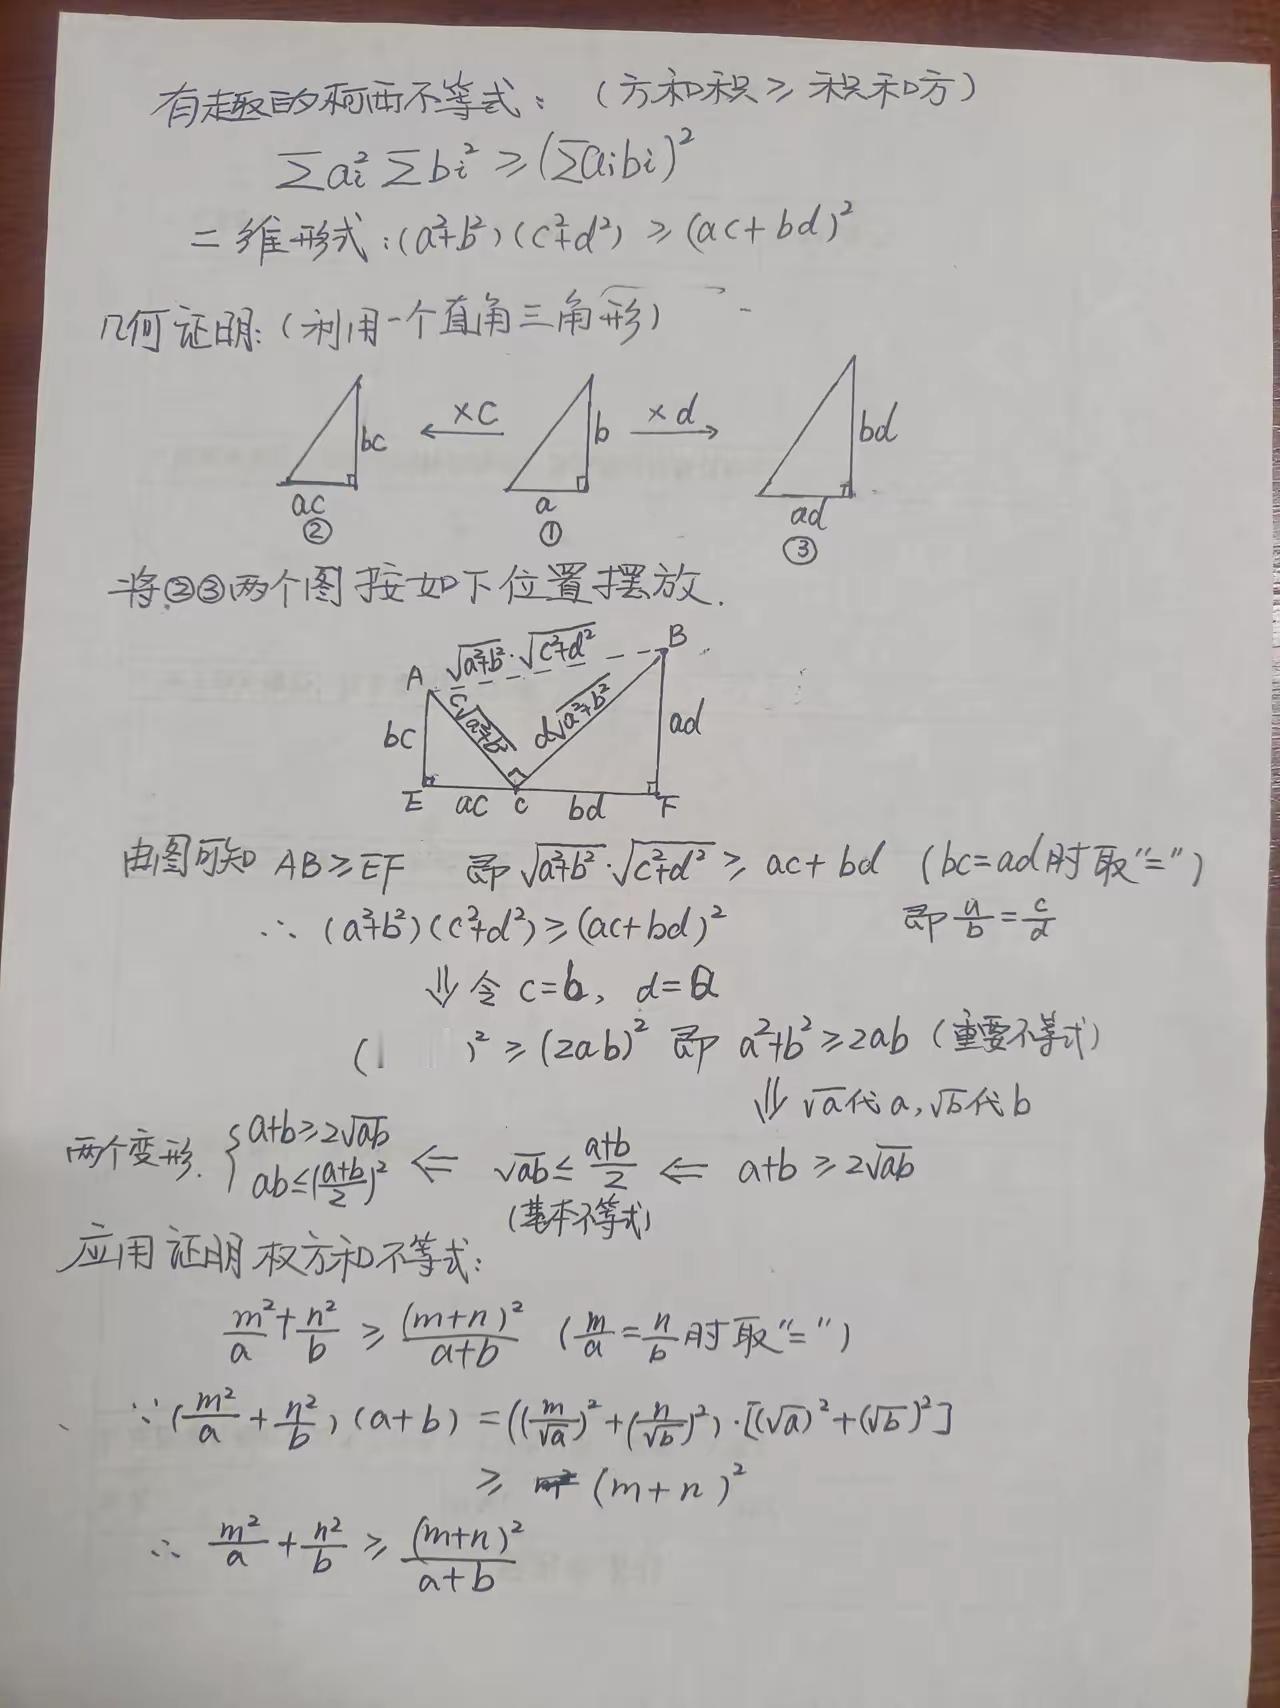 有趣的柯西不等式：（方和积≥积和方）
∑aᵢ²∑bᵢ²≥(∑aᵢbᵢ)²
二维形式：(a²+b²)(c²+d²)≥(ac+bd)²
几何证明：（利用一个直角三角形）
bc ×c b ×d bd
ac a ad
② ① ③
将②③两个图按如下位置摆放．
A √(a²+b²)·√(c²+d²) B
bc c√(a²+b²) d√(a²+b²) ad
E ac c bd F
由图可知 AB≥EF 即√(a²+b²)·√(c²+d²)≥ac+bd （bc=ad时取“=”）
∴(a²+b²)(c²+d²)≥(ac+bd)² 即a/b=c/d
⇓令c=b, d=a
( )²≥(2ab)² 即 a²+b²≥2ab（重要不等式）
⇓√a代a,√b代b
两个变形. { a+b≥2√ab ab≤((a+b)/2)² ⇐ √ab≤(a+b)/2 ⇐ a+b≥2√ab
（基本不等式）
应用证明权方和不等式：
m²/a+n²/b≥(m+n)²/(a+b) （m/a=n/b时取“=”）
∵(m²/a+n²/b)(a+b)=((m/√a)²+(n/√b)²)·[(√a)²+(√b)²]
≥(m+n)²
∴m²/a+n²/b≥(m+n)²/(a+b)